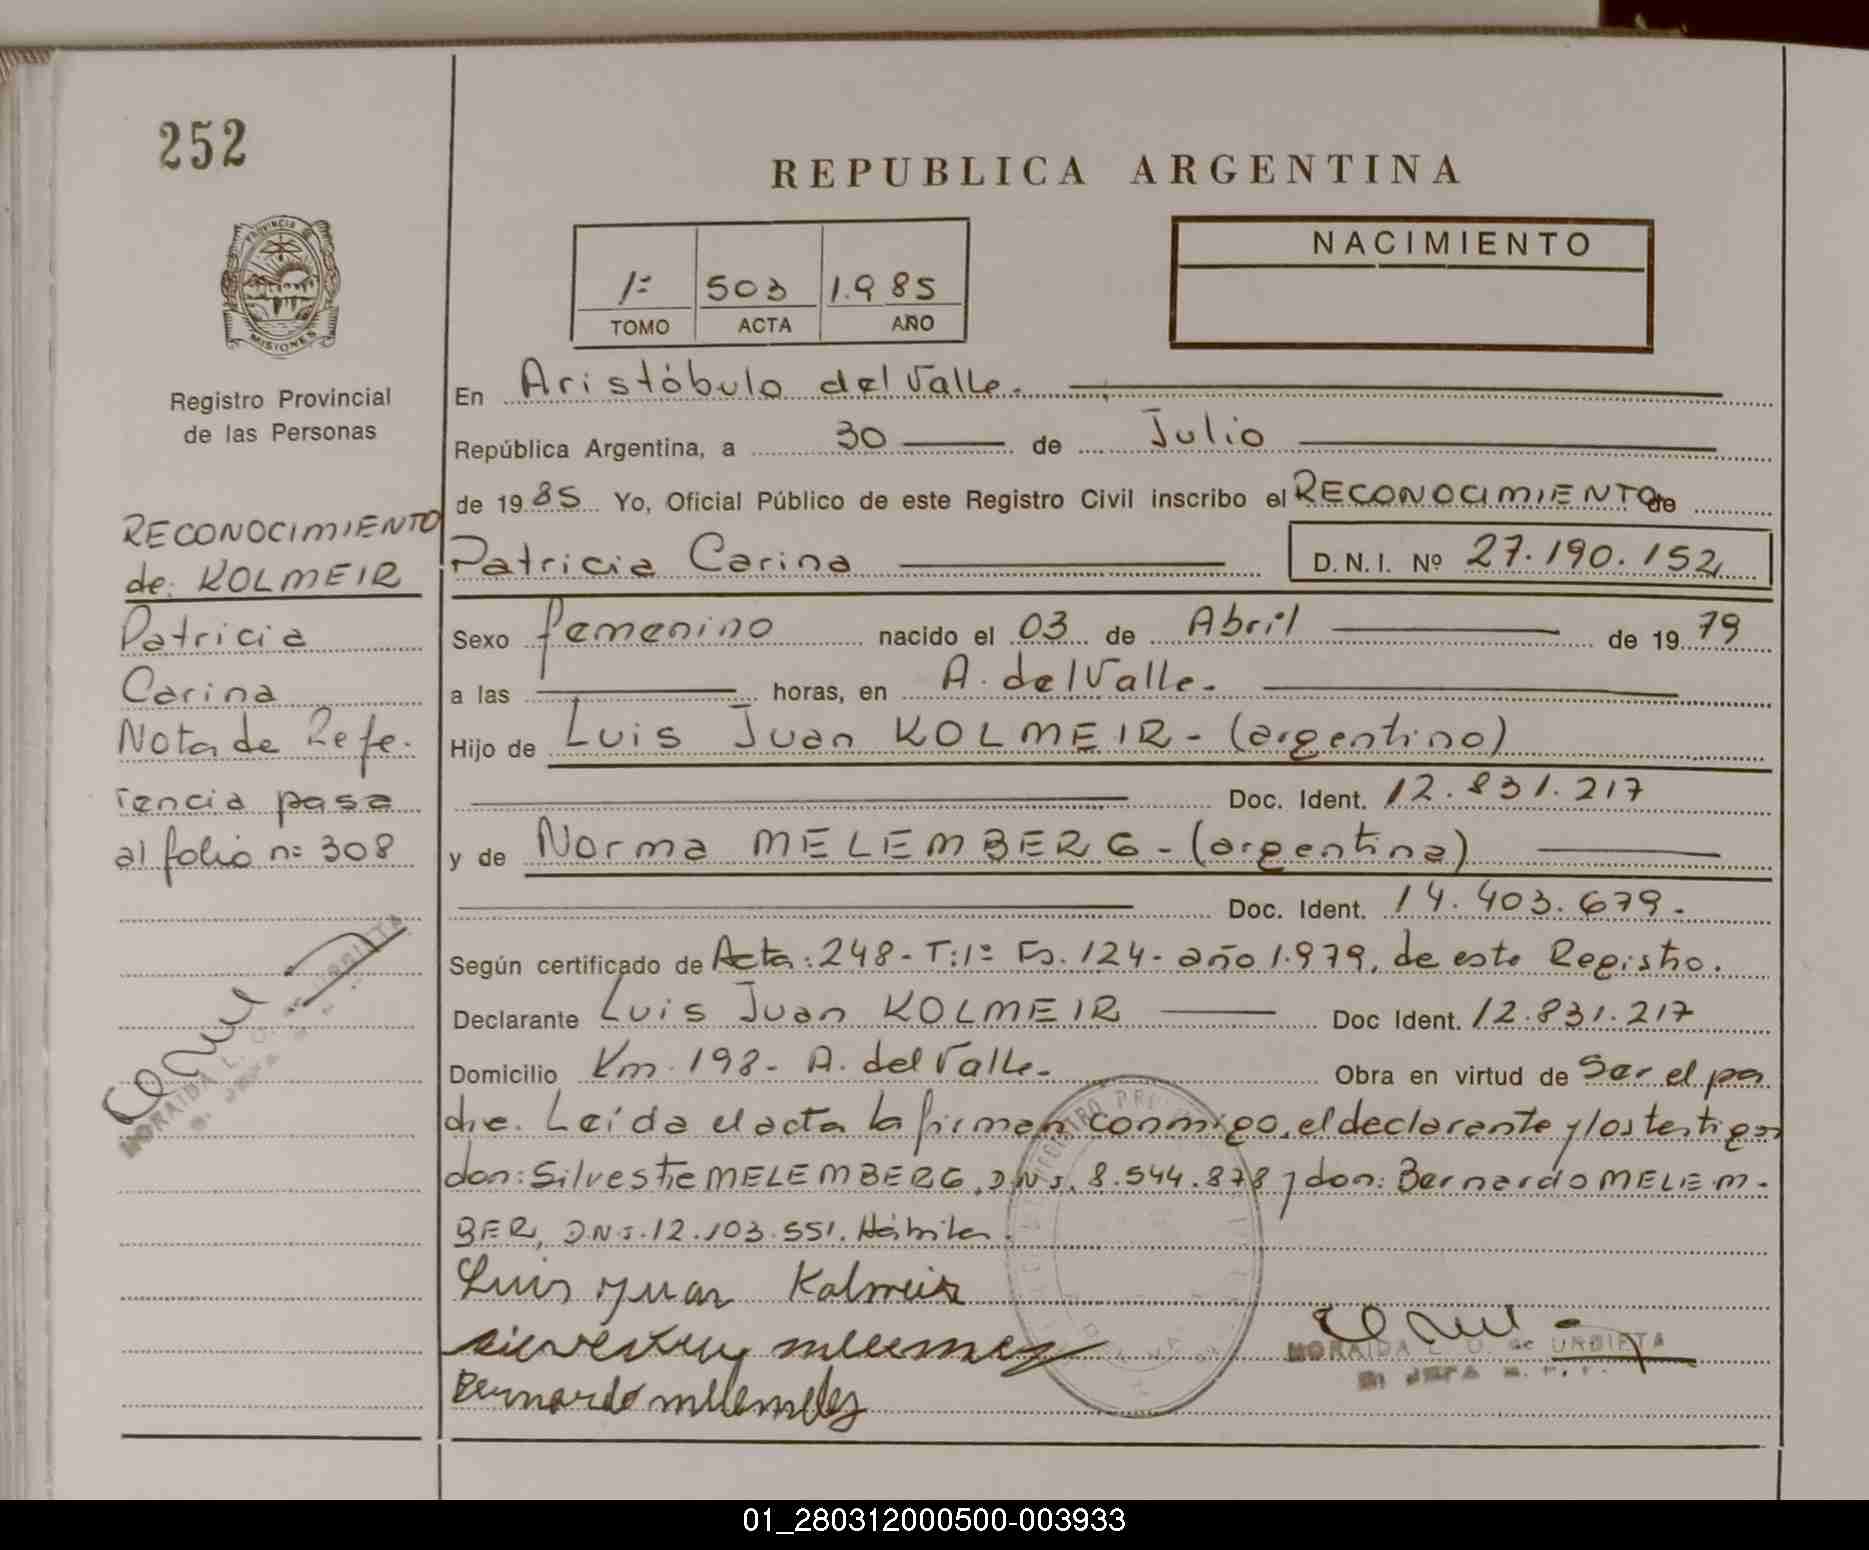 252
REPUBLICA ARGENTINA
PROVINCIA DE
MISIONES
1º 503 1.985
TOMO ACTA AÑO
NACIMIENTO
Registro Provincial
de las Personas
RECONOCIMIENTO
de: KOLMEIR
Patricia
Carina
Nota de Refe-
rencia pasa
al folio nº 308
MORAIDA L. O. de URBIETA
En Aristóbulo del Valle.
República Argentina, a 30 de Julio
de 1985 Yo, Oficial Público de este Registro Civil inscribo el RECONOCIMIENTO de
Patricia Carina D.N.I. Nº 27.190.152
Sexo femenino nacido el 03 de Abril de 1979
a las horas, en A. del Valle.
Hijo de Luis Juan KOLMEIR - (argentino)
Doc. Ident. 12.831.217
y de Norma MELEMBERG - (argentina)
Doc. Ident. 14.403.679.
Según certificado de Acta: 248 - T: 1º Fs. 124 - año 1.979, de este Registro.
Declarante Luis Juan KOLMEIR Doc Ident. 12.831.217
Domicilio Km. 198 - A. del Valle. Obra en virtud de Ser el pa
dre. Leída el acta la firman conmigo, el declarante y los testigos
don: Silvestre MELEMBERG, D.N.I. 8.544.878 y don: Bernardo MELEM-
BER, D.N.I. 12.103.551. Hábiles.
Luis Juan Kolmeir
Bernardo
MORAIDA L. O. de URBIETA
JEFA
01_280312000500-003933